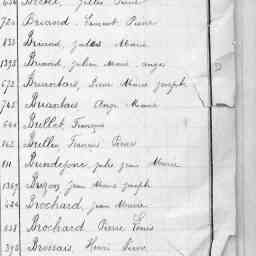 Briand, Pierre
833 Briand, Jules Marie
1393 Briand, Julien Marie ange
672 Briantais, Pierre Marie Joseph
745 Briantais Ange Marie
644 Brillet, François
162 François Pierre
811 Jules Jean Marie
1367 Jean Marie Joseph
424 Brochard, Jean Marie
658 Brochard Pierre Louis
392 Brossais, Henri Pierre